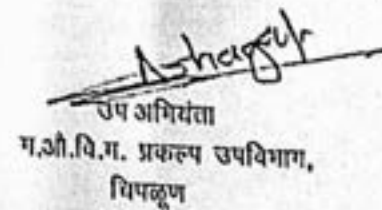 उप अभियंता
म.औ.वि.म. प्रकल्प उपविभाग,
चिपळूण